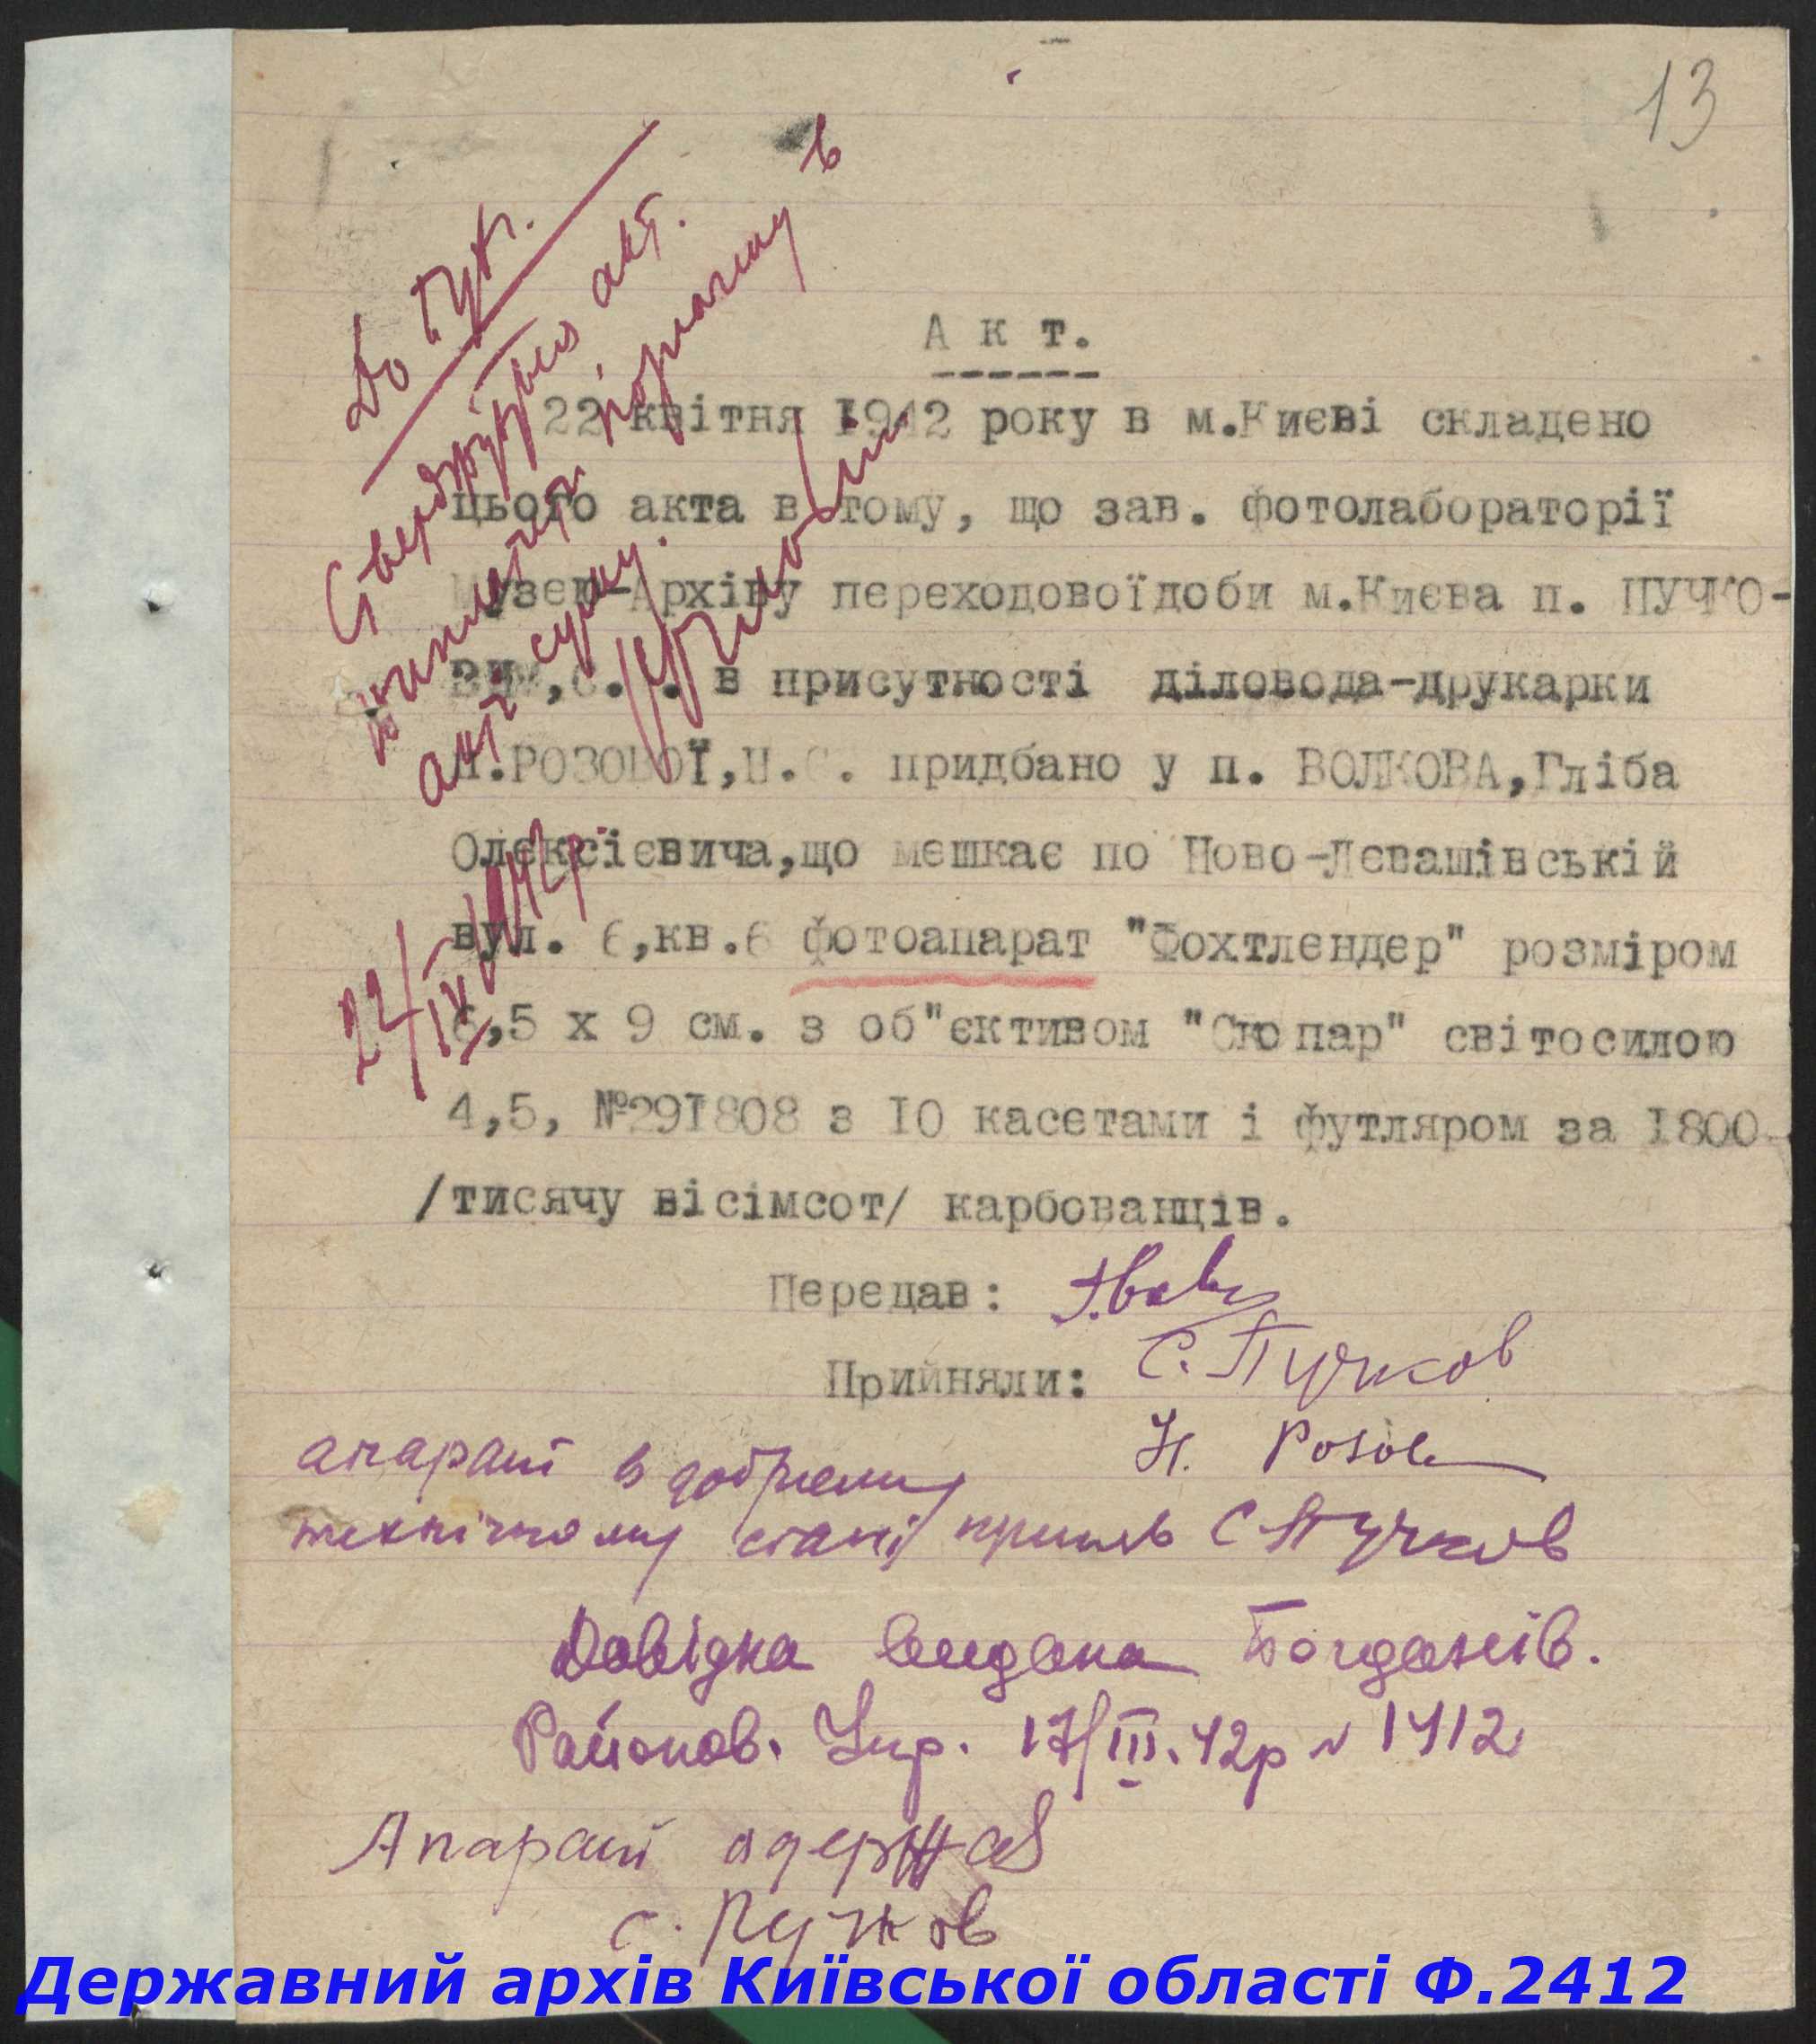 13
До бух.
Стверджую акт.
виплатіть зазначену в
акті суму.
22/IV 1942р.
Акт.
22 квітня 1942 року в м.Києві складено
цього акта в тому, що зав. фотолабораторії
Музею-Архіву переходовоїдоби м.Києва п. ПУЧКО-
ВИМ,С. . в присутності діловода-друкарки
п.РОЗОВОЇ,Н.С. придбано у п. ВОЛКОВА,Гліба
Олексієвича,що мешкає по Ново-Левашівській
вул. 6,кв.6 фотоапарат "Фохтлендер" розміром
6,5 х 9 см. з об"єктивом "Скопар" світосилою
4,5, №291808 з 10 касетами і футляром за 1800-
/тисячу вісімсот/ карбованців.
Передав:
Прийняли: С. Пучков
Н. Розов
апарат в доброму
технічному стані приняв С Пучков
Довідка видана Богданів.
Районов. Упр. 17/III.42р № 1412
Апарат одержав
С. Пучков
Державний архів Київської області Ф.2412